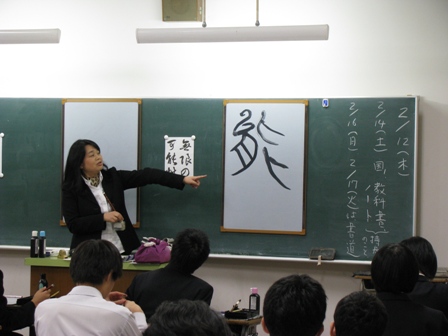 2/12(木)
2/14(土) 国、教科書
ノート
2/16(月) 2/17(火)は書道
能
無限の
可能性